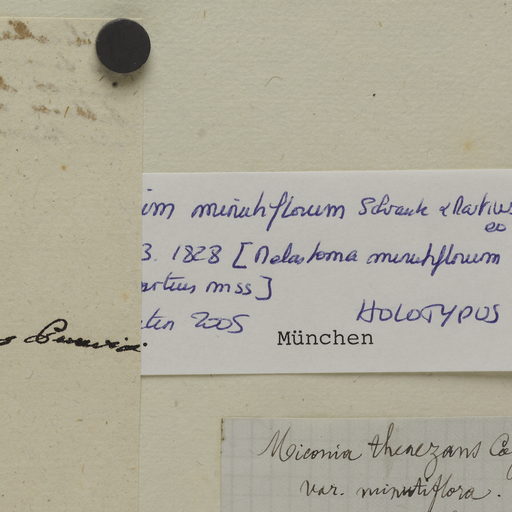 im minutiflorum Schrank & Martius
eo
3. 1828 [Melastoma minutiflorum
artius mss]
ten 2005 HOLOTYPUS
München
Miconia theaezans Co
var. minutiflora.